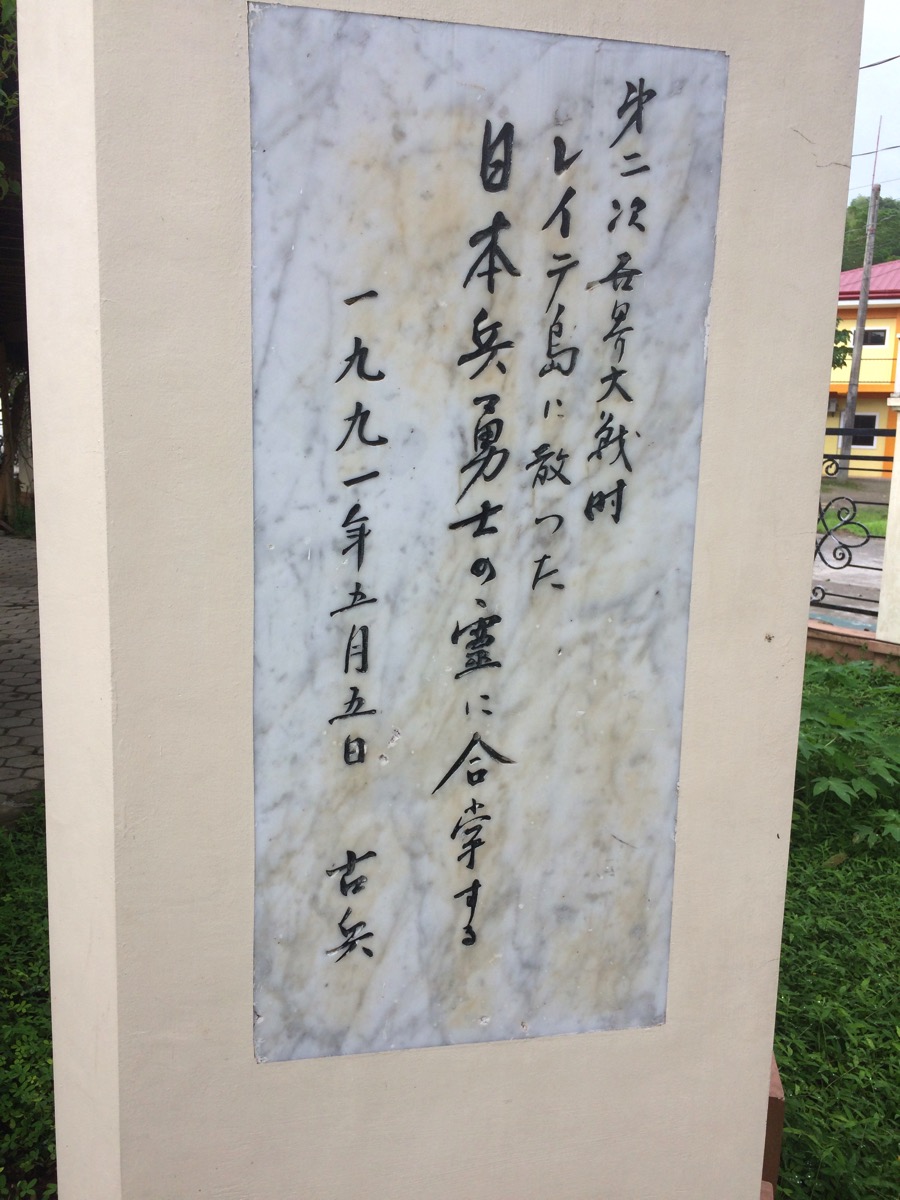 第二次世界大戦時
レイテ島に散った
日本兵勇士の霊に合掌する
一九九一年五月五日 古兵